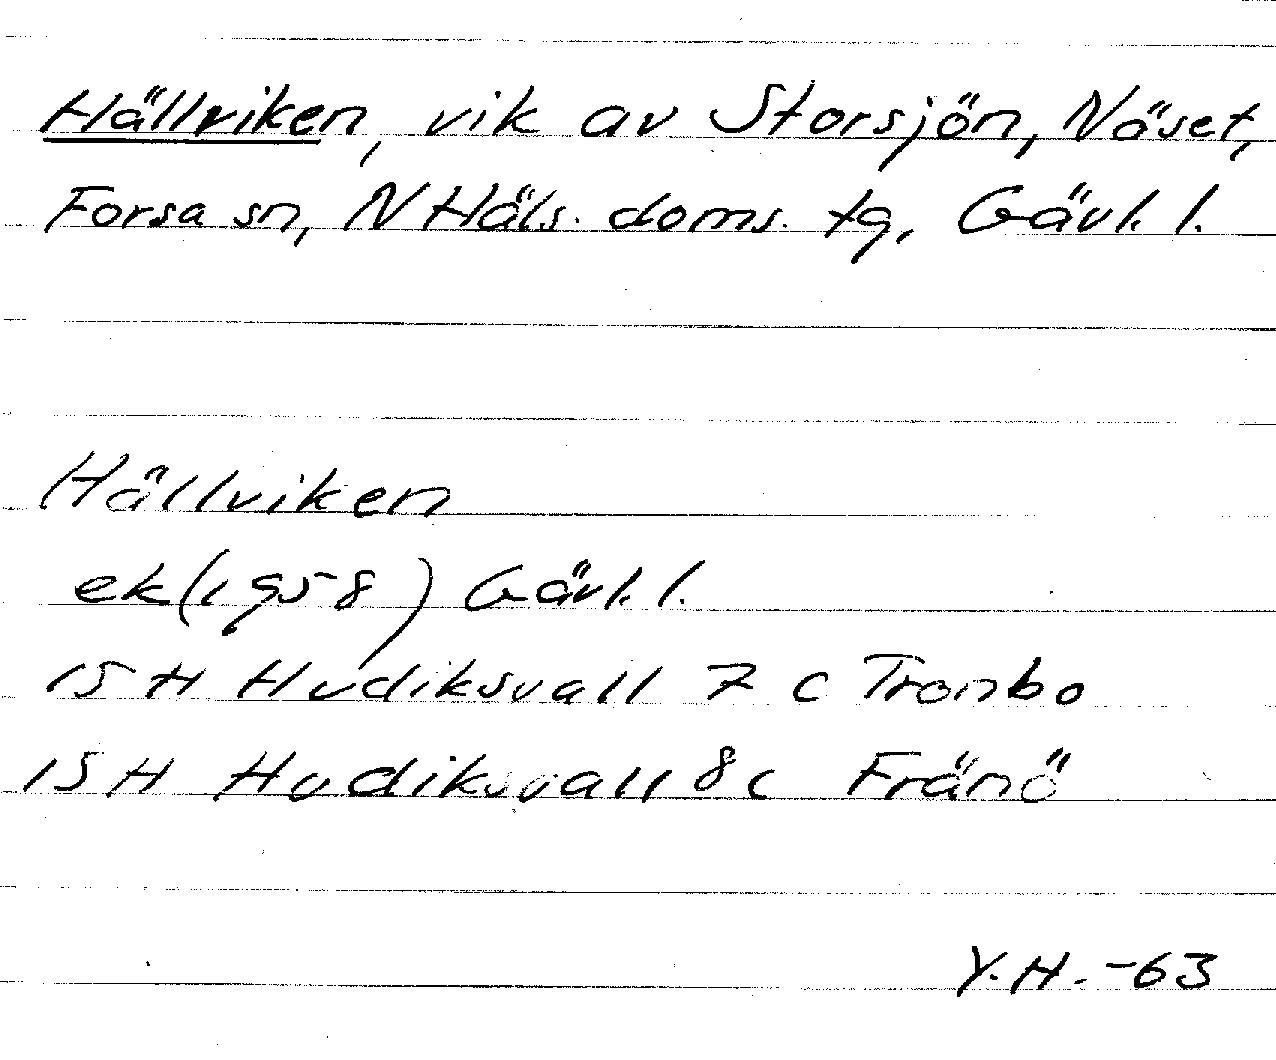 Hällviken, vik av Storsjön, Näset,
Forsa sn, N Häls. doms. tg, Gävl. l.
Hällviken
ek (1958) Gävl. l.
15 H Hudiksvall 7 c Tronbo
15 H Hudiksvall 8 c Fränö
Y.H. -63